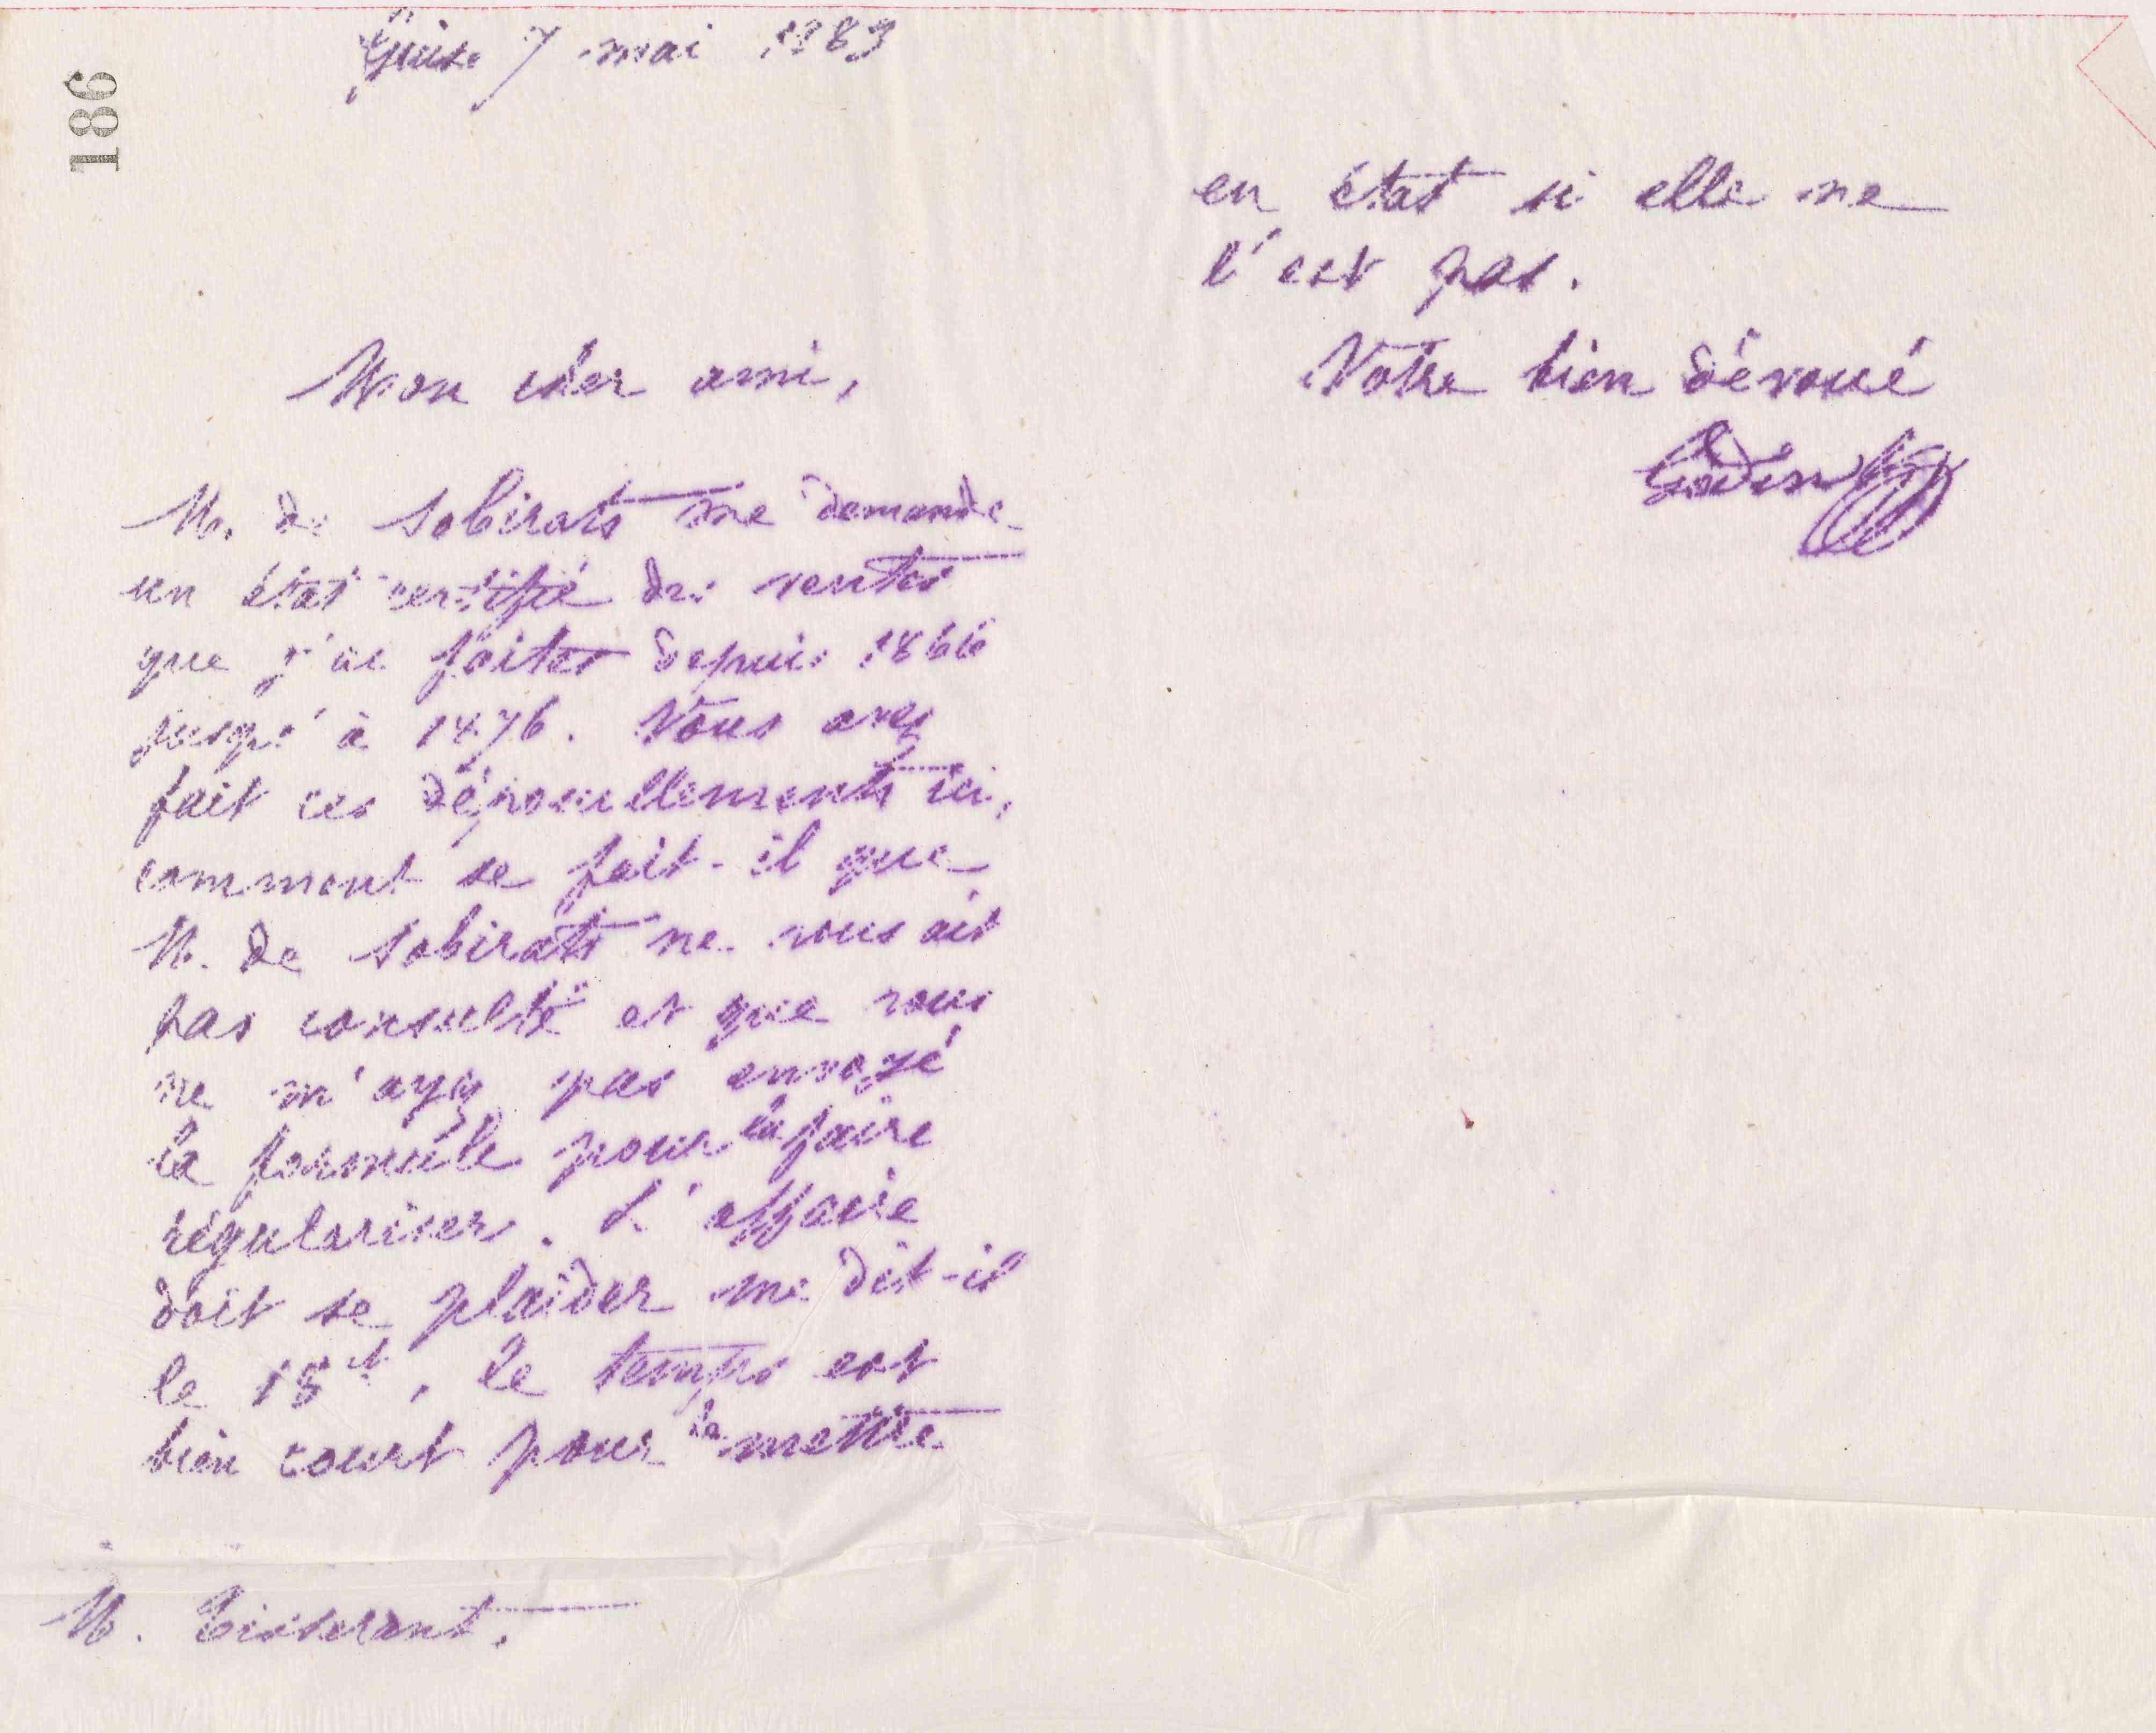 186
Guise 7 mai 1883
Mon cher ami,
M. de Sobirats me demande
un état certifié des ventes
que j'ai faites depuis 1866
jusqu'à 1876. Vous avez
fait ces dépouillements ici,
comment se fait-il que
M. de Sobirats ne vous ait
pas consulté et que vous
ne m'ayez pas envoyé
la formule pour la faire
régulariser. L'affaire
doit se plaider me dit-il
le 15 ct, le temps est
bien court pour la mettre
M. Tisserant.
en état si elle ne
l'est pas.
Votre bien dévoué
Godin